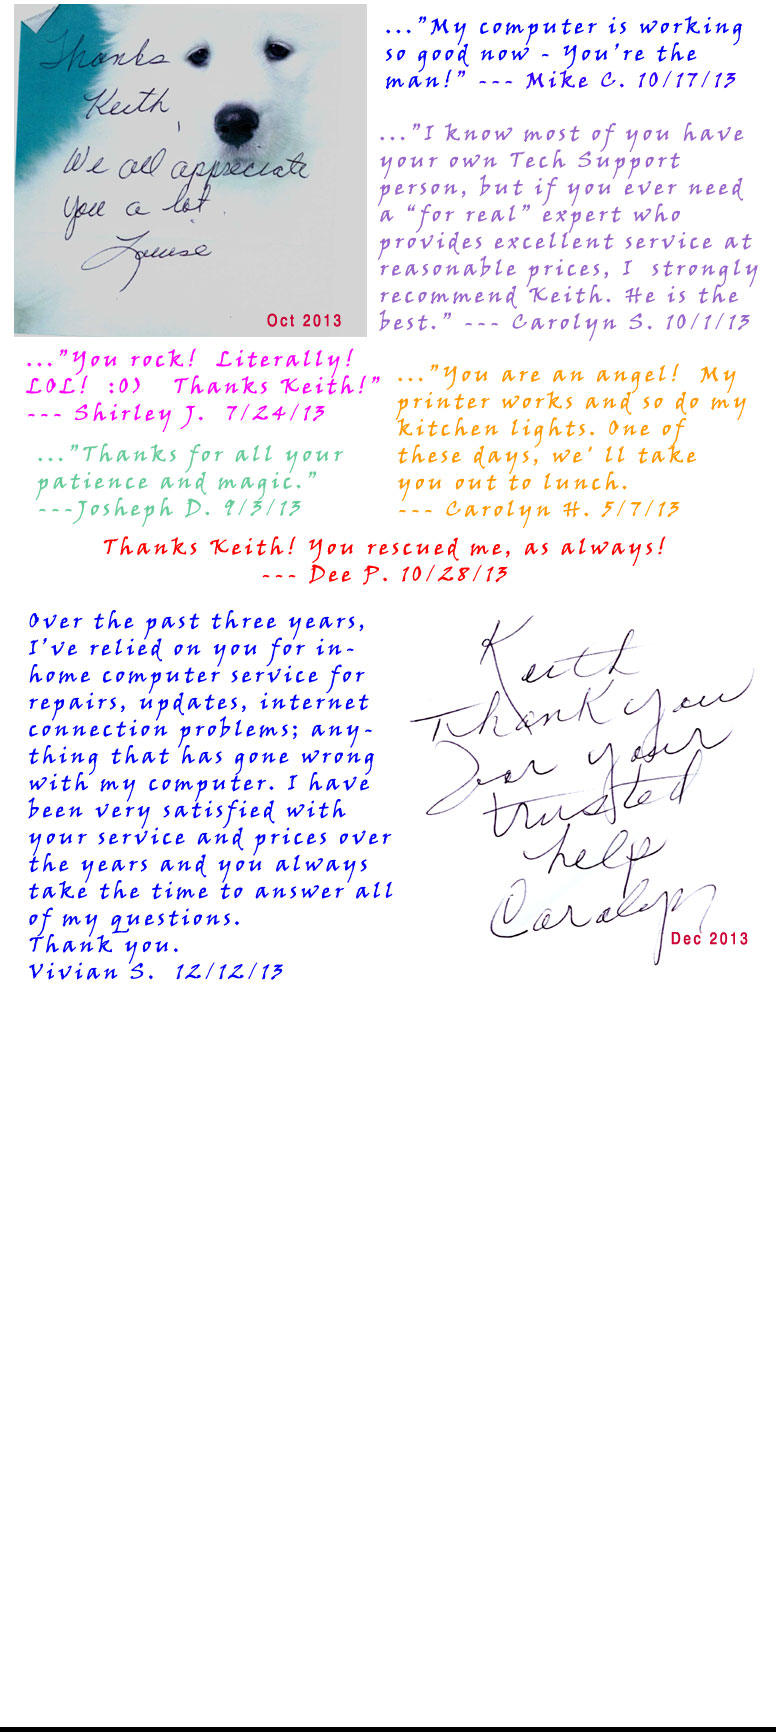 Thanks
Keith,
We all appreciate
you a lot.
Louise
Oct 2013
..."My computer is working
so good now - You're the
man!" --- Mike C. 10/17/13
..."I know most of you have
your own Tech Support
person, but if you ever need
a “for real” expert who
provides excellent service at
reasonable prices, I strongly
recommend Keith. He is the
best.” --- Carolyn S. 10/1/13
..."You rock! Literally!
LOL! :0) Thanks Keith!”
--- Shirley J. 7/24/13
..."You are an angel! My
printer works and so do my
kitchen lights. One of
these days, we' ll take
you out to lunch.
--- Carolyn H. 5/7/13
..."Thanks for all your
patience and magic.”
---Josheph D. 9/3/13
Thanks Keith! You rescued me, as always!
--- Dee P. 10/28/13
Over the past three years,
I've relied on you for in-
home computer service for
repairs, updates, internet
connection problems; any-
thing that has gone wrong
with my computer. I have
been very satisfied with
your service and prices over
the years and you always
take the time to answer all
of my questions.
Thank you.
Vivian S. 12/12/13
Keith
Thank you
for your
trusted
help
Carolyn
Dec 2013